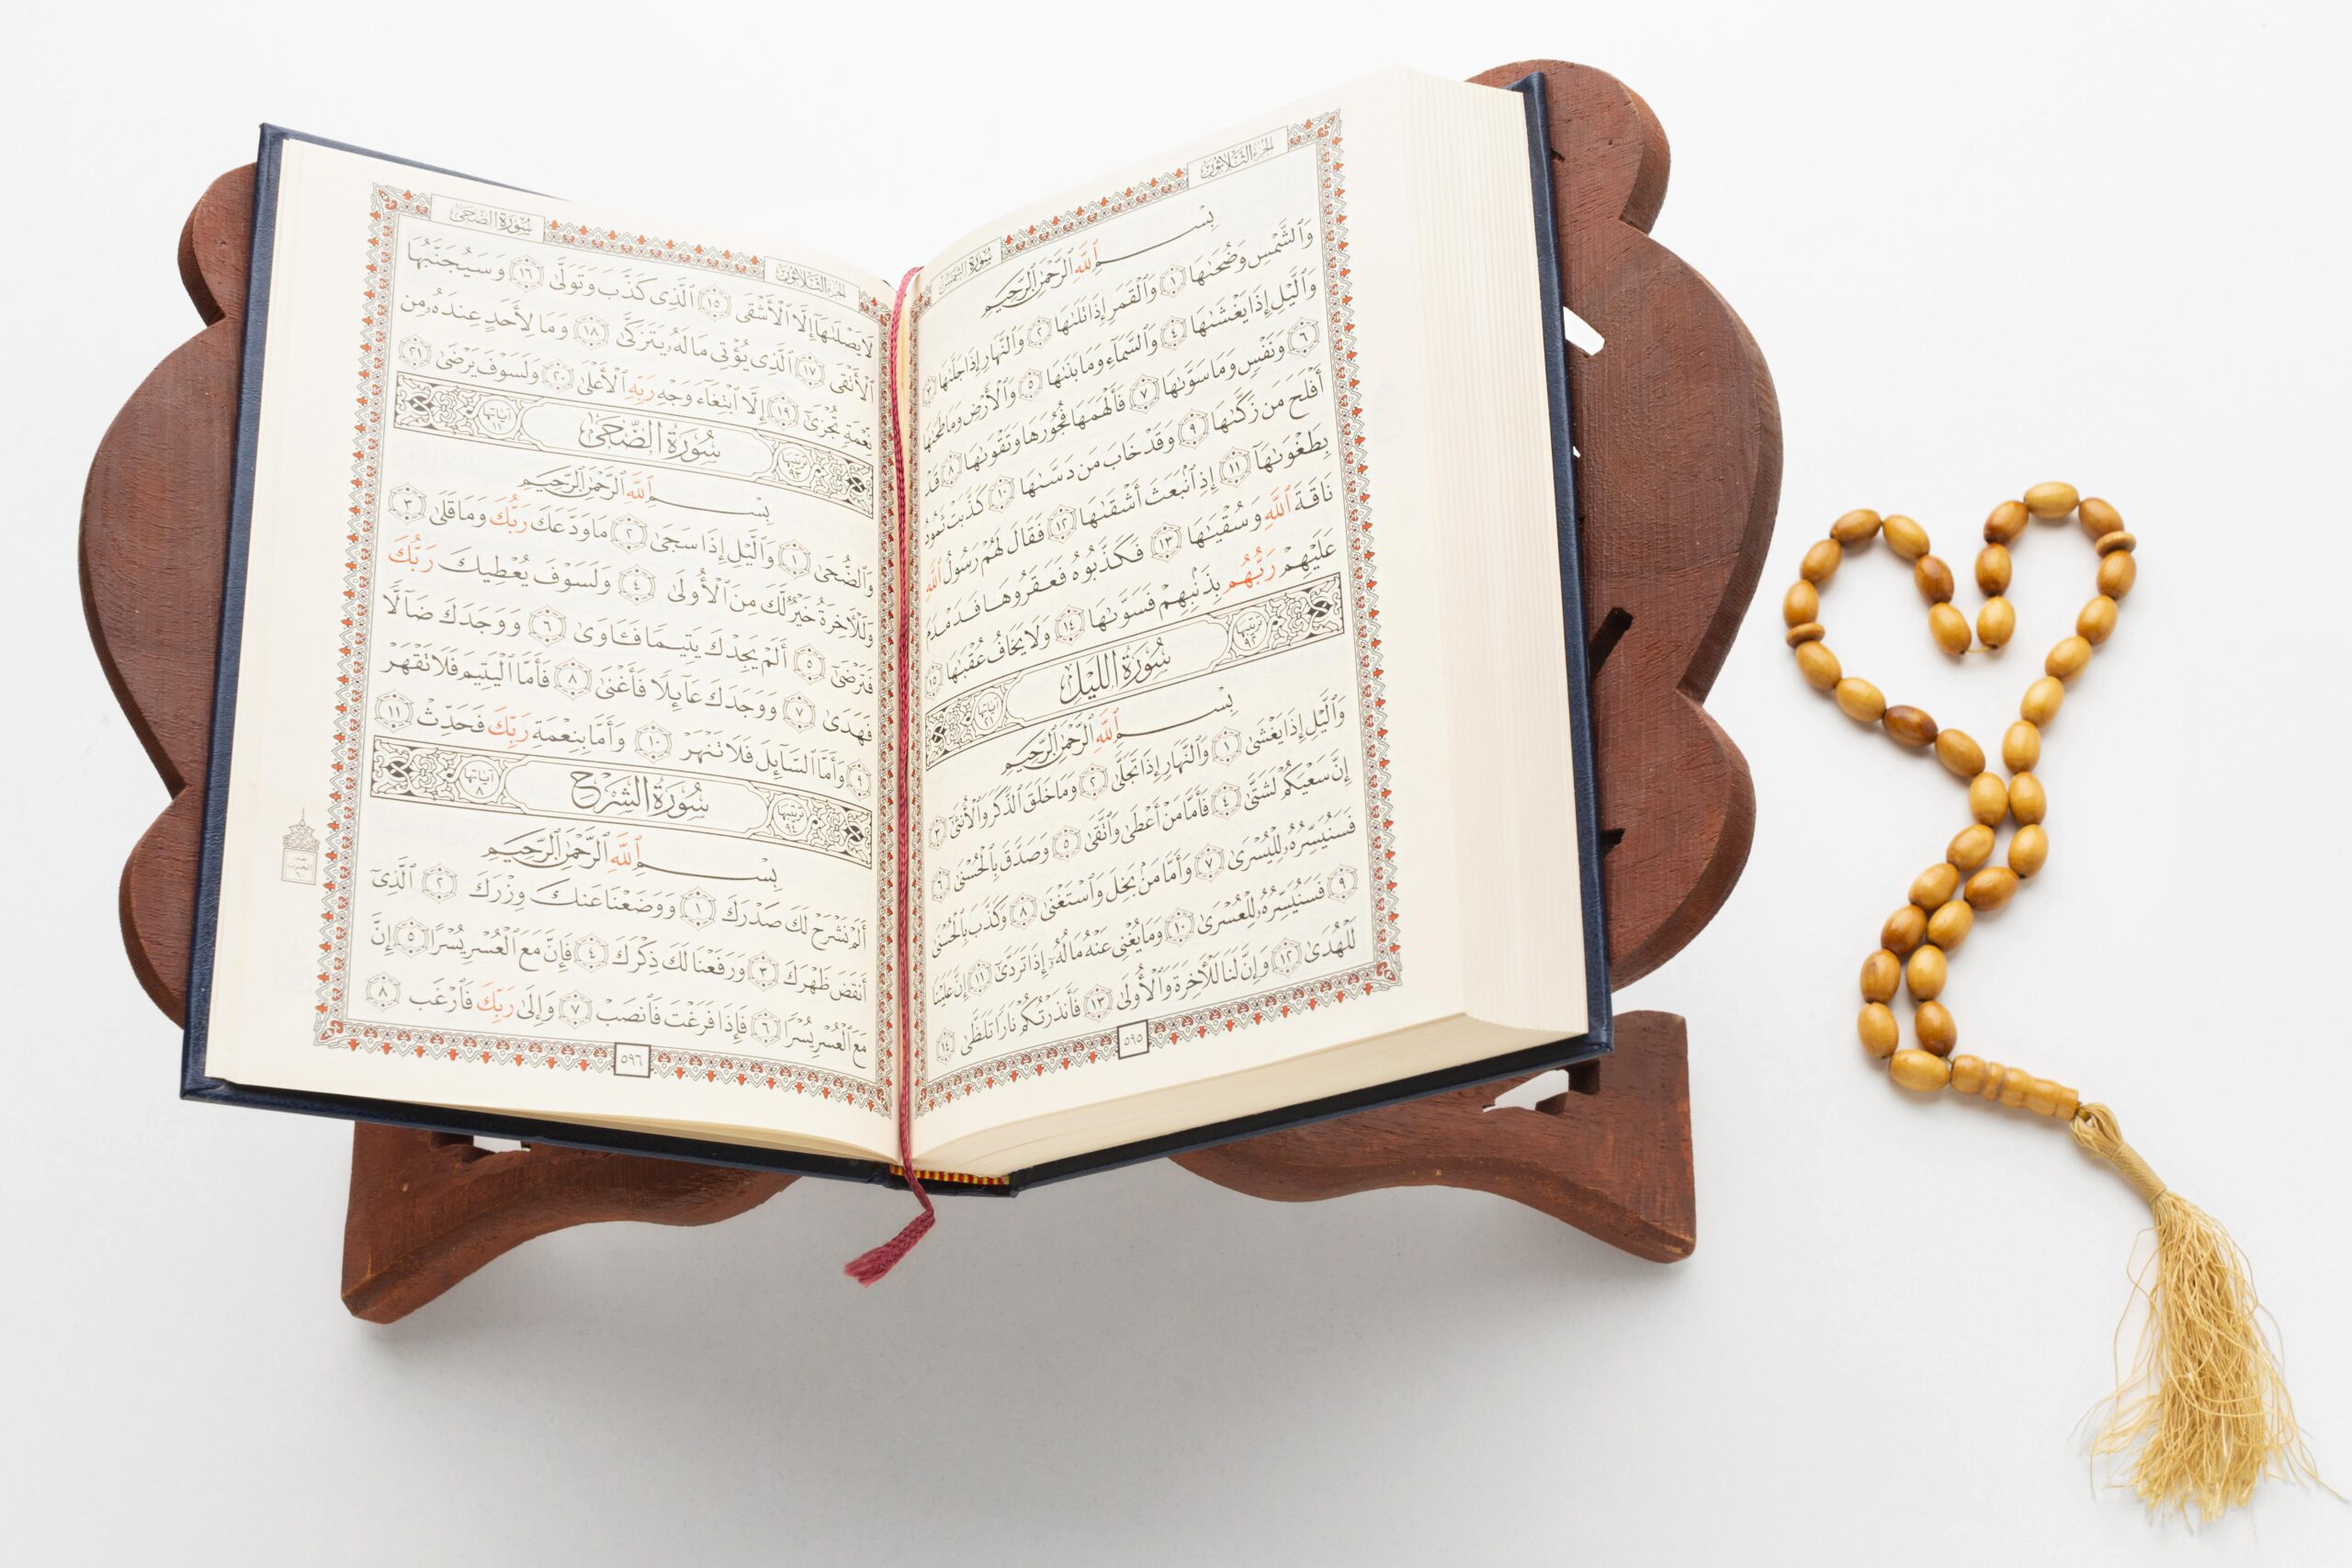 الجزء الثلاثون
سورة الشمس
بسم الله الرحمن الرحيم
وَٱلشَّمْسِ وَضُحَىٰهَا ١ وَٱلْقَمَرِ إِذَا تَلَىٰهَا ٢ وَٱلنَّهَارِ إِذَا جَلَّىٰهَا ٣
وَٱلَّيْلِ إِذَا يَغْشَىٰهَا ٤ وَٱلسَّمَآءِ وَمَا بَنَىٰهَا ٥ وَٱلْأَرْضِ وَمَا طَحَىٰهَا
٦ وَنَفْسٍ وَمَا سَوَّىٰهَا ٧ فَأَلْهَمَهَا فُجُورَهَا وَتَقْوَىٰهَا ٨ قَدْ
أَفْلَحَ مَن زَكَّىٰهَا ٩ وَقَدْ خَابَ مَن دَسَّىٰهَا ١٠ كَذَّبَتْ ثَمُودُ
بِطَغْوَىٰهَآ ١١ إِذِ ٱنۢبَعَثَ أَشْقَىٰهَا ١٢ فَقَالَ لَهُمْ رَسُولُ ٱللَّهِ
نَاقَةَ ٱللَّهِ وَسُقْيَـٰهَا ١٣ فَكَذَّبُوهُ فَعَقَرُوهَا فَدَمْدَمَ
عَلَيْهِمْ رَبُّهُم بِذَنۢبِهِمْ فَسَوَّىٰهَا ١٤ وَلَا يَخَافُ عُقْبَـٰهَا ١٥
ترتيبها ٩٢ سورة الليل آياتها ٢١
بسم الله الرحمن الرحيم
وَٱلَّيْلِ إِذَا يَغْشَىٰ ١ وَٱلنَّهَارِ إِذَا تَجَلَّىٰ ٢ وَمَا خَلَقَ ٱلذَّكَرَ وَٱلْأُنثَىٰٓ ٣
إِنَّ سَعْيَكُمْ لَشَتَّىٰ ٤ فَأَمَّا مَنْ أَعْطَىٰ وَٱتَّقَىٰ ٥ وَصَدَّقَ بِٱلْحُسْنَىٰ ٦
فَسَنُيَسِّرُهُۥ لِلْيُسْرَىٰ ٧ وَأَمَّا مَنۢ بَخِلَ وَٱسْتَغْنَىٰ ٨ وَكَذَّبَ بِٱلْحُسْنَىٰ
٩ فَسَنُيَسِّرُهُۥ لِلْعُسْرَىٰ ١٠ وَمَا يُغْنِى عَنْهُ مَالُهُۥٓ إِذَا تَرَدَّىٰٓ ١١ إِنَّ عَلَيْنَا
لَلْهُدَىٰ ١٢ وَإِنَّ لَنَا لَلْـَٔاخِرَةَ وَٱلْأُولَىٰ ١٣ فَأَنذَرْتُكُمْ نَارًا تَلَظَّىٰ ١٤
٥٩٥
الجزء الثلاثون
سورة الضحى
لَا يَصْلَىٰهَآ إِلَّا ٱلْأَشْقَى ١٥ ٱلَّذِى كَذَّبَ وَتَوَلَّىٰ ١٦ وَسَيُجَنَّبُهَا
ٱلْأَتْقَى ١٧ ٱلَّذِى يُؤْتِى مَالَهُۥ يَتَزَكَّىٰ ١٨ وَمَا لِأَحَدٍ عِندَهُۥ مِن
نِّعْمَةٍ تُجْزَىٰٓ ١٩ إِلَّا ٱبْتِغَآءَ وَجْهِ رَبِّهِ ٱلْأَعْلَىٰ ٢٠ وَلَسَوْفَ يَرْضَىٰ ٢١
ترتيبها ٩٣ سورة الضحى آياتها ١١
بسم الله الرحمن الرحيم
وَٱلضُّحَىٰ ١ وَٱلَّيْلِ إِذَا سَجَىٰ ٢ مَا وَدَّعَكَ رَبُّكَ وَمَا قَلَىٰ ٣
وَلَلْـَٔاخِرَةُ خَيْرٌ لَّكَ مِنَ ٱلْأُولَىٰ ٤ وَلَسَوْفَ يُعْطِيكَ رَبُّكَ
فَتَرْضَىٰٓ ٥ أَلَمْ يَجِدْكَ يَتِيمًا فَـَٔاوَىٰ ٦ وَوَجَدَكَ ضَآلًّا
فَهَدَىٰ ٧ وَوَجَدَكَ عَآئِلًا فَأَغْنَىٰ ٨ فَأَمَّا ٱلْيَتِيمَ فَلَا تَقْهَرْ
٩ وَأَمَّا ٱلسَّآئِلَ فَلَا تَنْهَرْ ١٠ وَأَمَّا بِنِعْمَةِ رَبِّكَ فَحَدِّثْ ١١
ترتيبها ٩٤ سورة الشرح آياتها ٨
بسم الله الرحمن الرحيم
أَلَمْ نَشْرَحْ لَكَ صَدْرَكَ ١ وَوَضَعْنَا عَنكَ وِزْرَكَ ٢ ٱلَّذِىٓ
أَنقَضَ ظَهْرَكَ ٣ وَرَفَعْنَا لَكَ ذِكْرَكَ ٤ فَإِنَّ مَعَ ٱلْعُسْرِ يُسْرًا ٥ إِنَّ
مَعَ ٱلْعُسْرِ يُسْرًا ٦ فَإِذَا فَرَغْتَ فَٱنصَبْ ٧ وَإِلَىٰ رَبِّكَ فَٱرْغَب ٨
٥٩٦